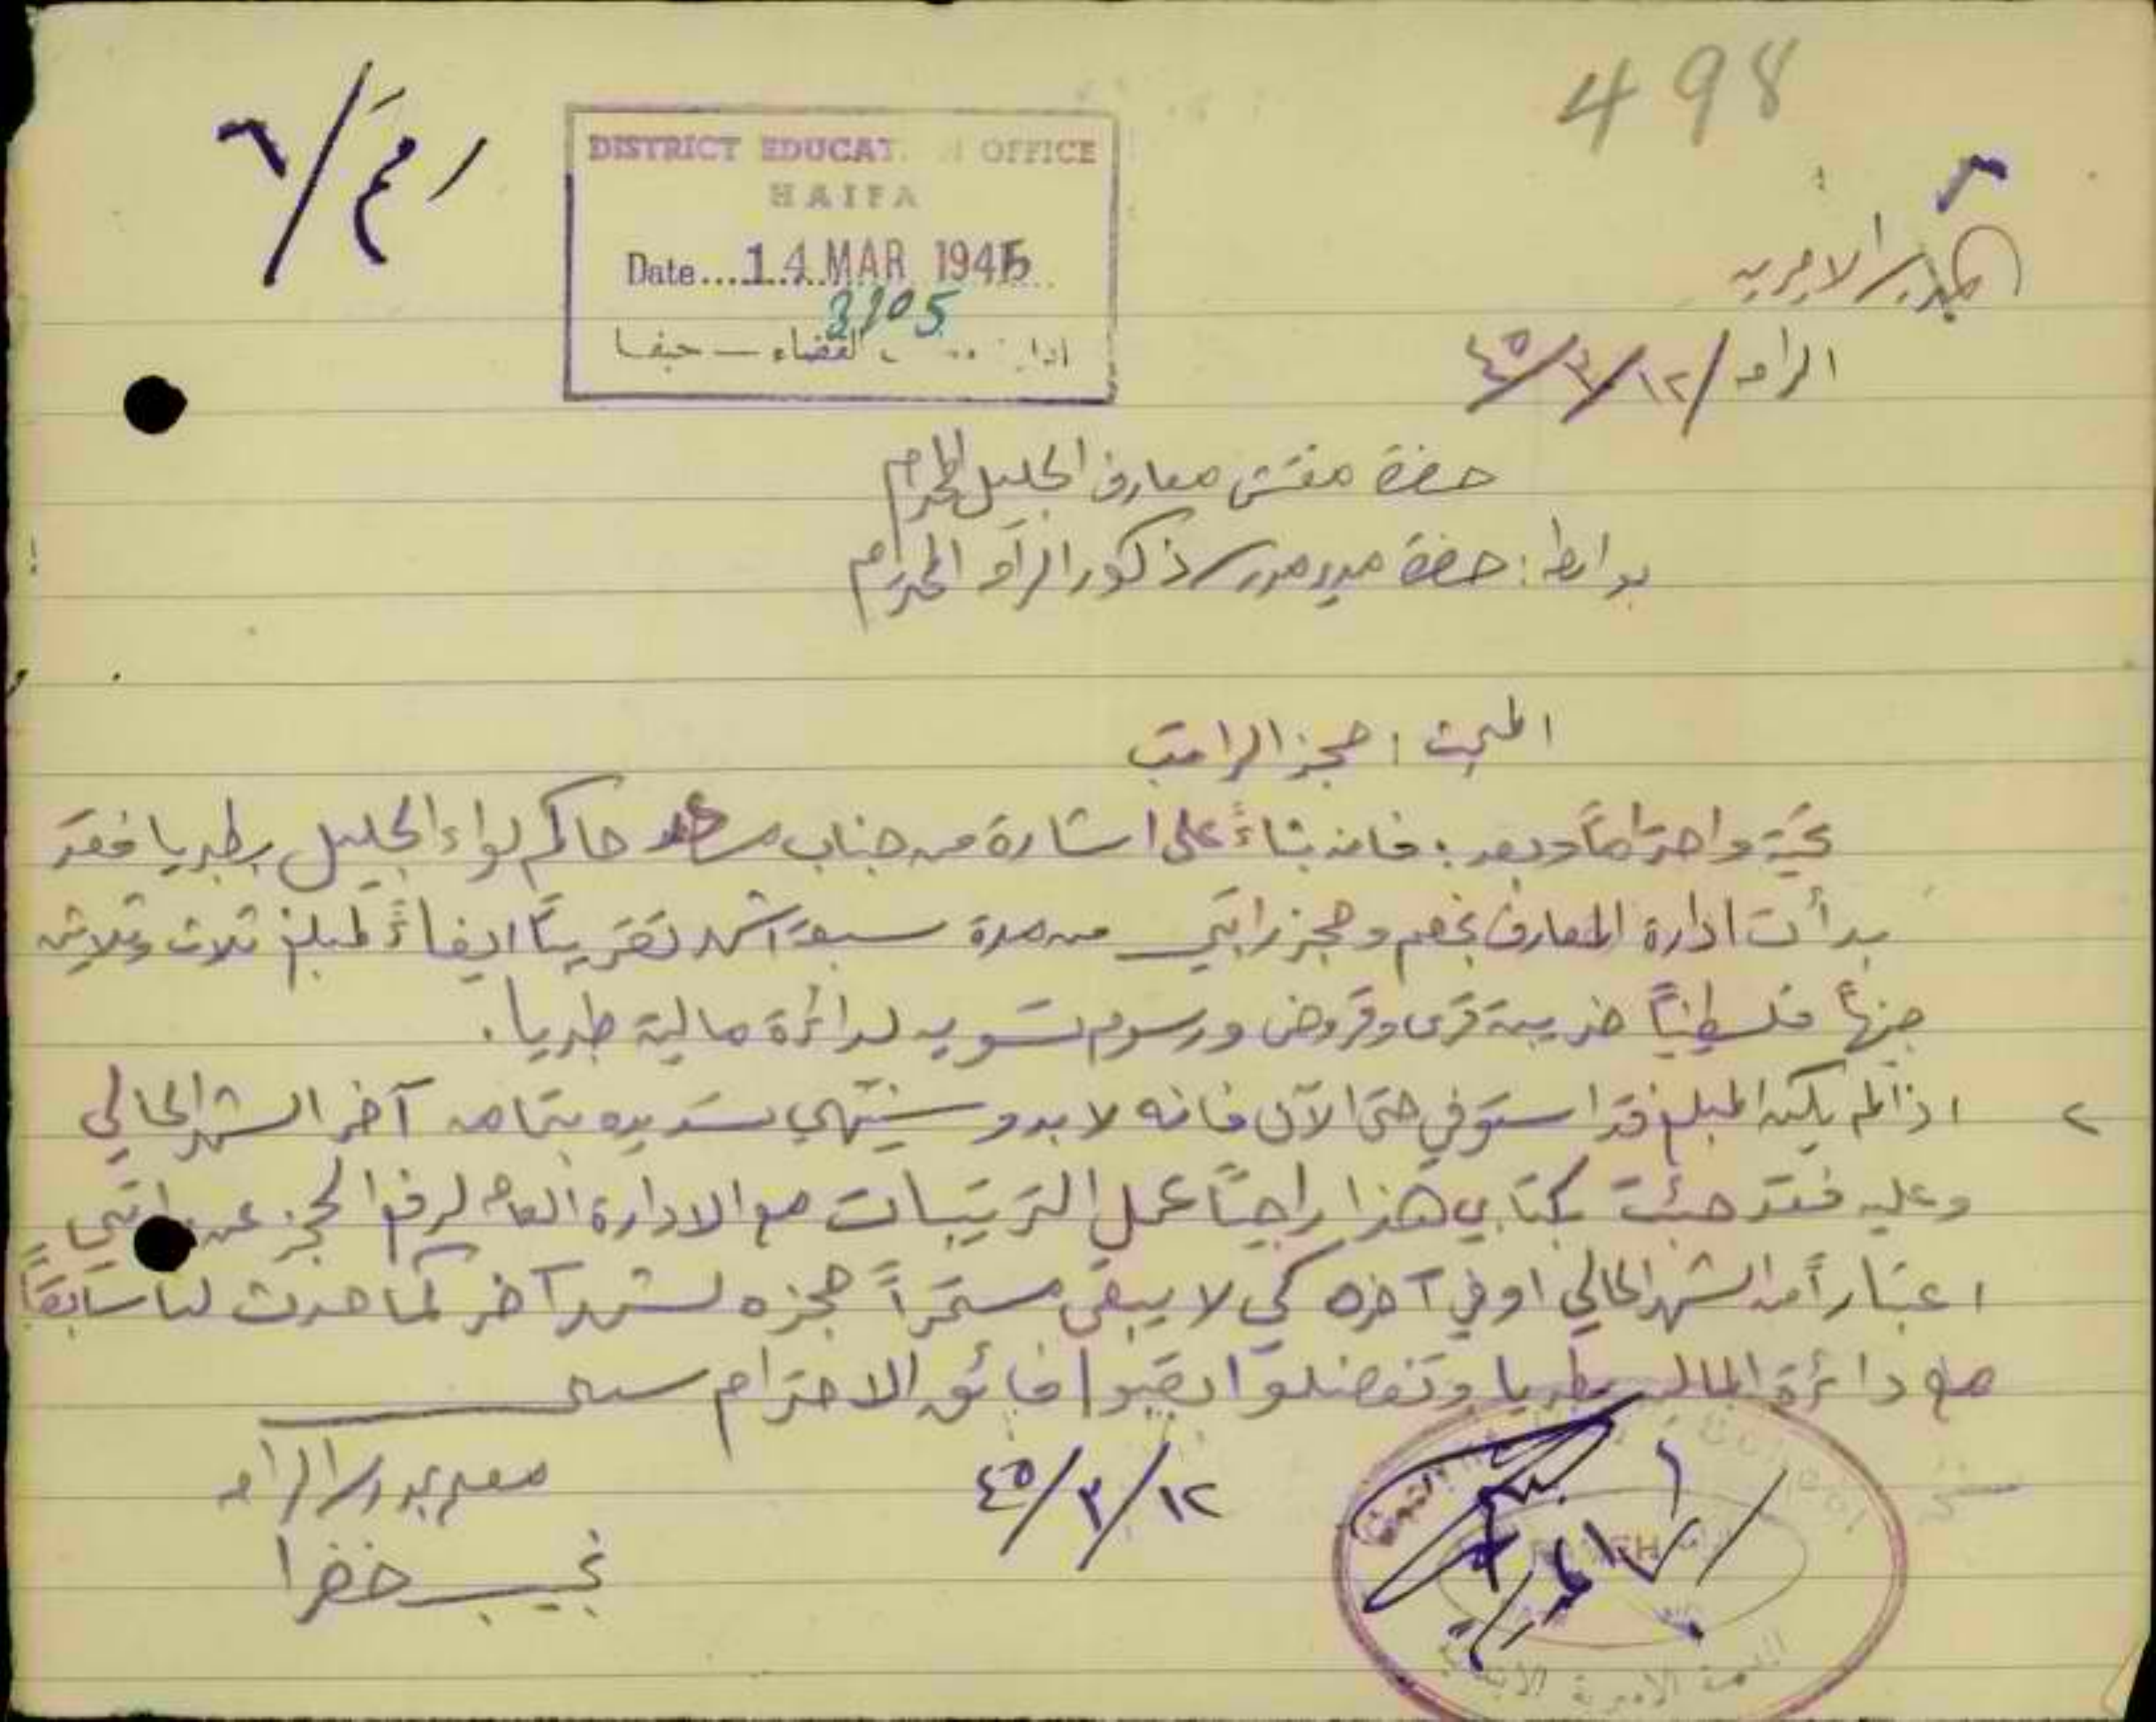 498
٦/٤١
DISTRICT EDUCAT OFFICE
HAIFA
Date....14 MAR 1945
3105
القضاء — حيفا
المدرسة الاميرية
الرامه ١٢/٣/٤٥
حضرة مفتش معارف الجليل المحترم
بواسطة : حضرة مدير مدرسة ذكور الرامه المحترم
المبحث : حجز الراتب
تحية واحتراماً وبعد : فانه بناءً على اشارة من جناب حاكم لواء الجليل بطبريا فقد
بدأت ادارة المعارف بخصم وحجز راتبي من مدة سبعة اشهر تقريباً ايفاءً لمبلغ ثلاث وثلاثين
جنيهاً فلسطينياً ضريبة قرى وقروض ورسوم تسويه لدائرة مالية طبريا .
٢ اذا لم يكن المبلغ قد استوفي حتى الآن فانه لا بد وسينتهي تسديده بتمامه آخر الشهر الحالي
وعليه فقد جئت بكتابي هذا راجياً عمل الترتيبات مع الادارة العامه لرفع الحجز عن راتبي
اعتباراً من الشهر الحالي او في آخره كي لا يبقى مستمراً حجزه لشهر آخر كما حدث لنا سابقاً
مع دائرة المالية بطبريا وتفضلوا بقبول فائق الاحترام سيدي
١٢/٣/٤٥
معلم بمدرسة الرامه
نجيب خضرا
RAMEH
المدرسة الاميرية الابتدائية